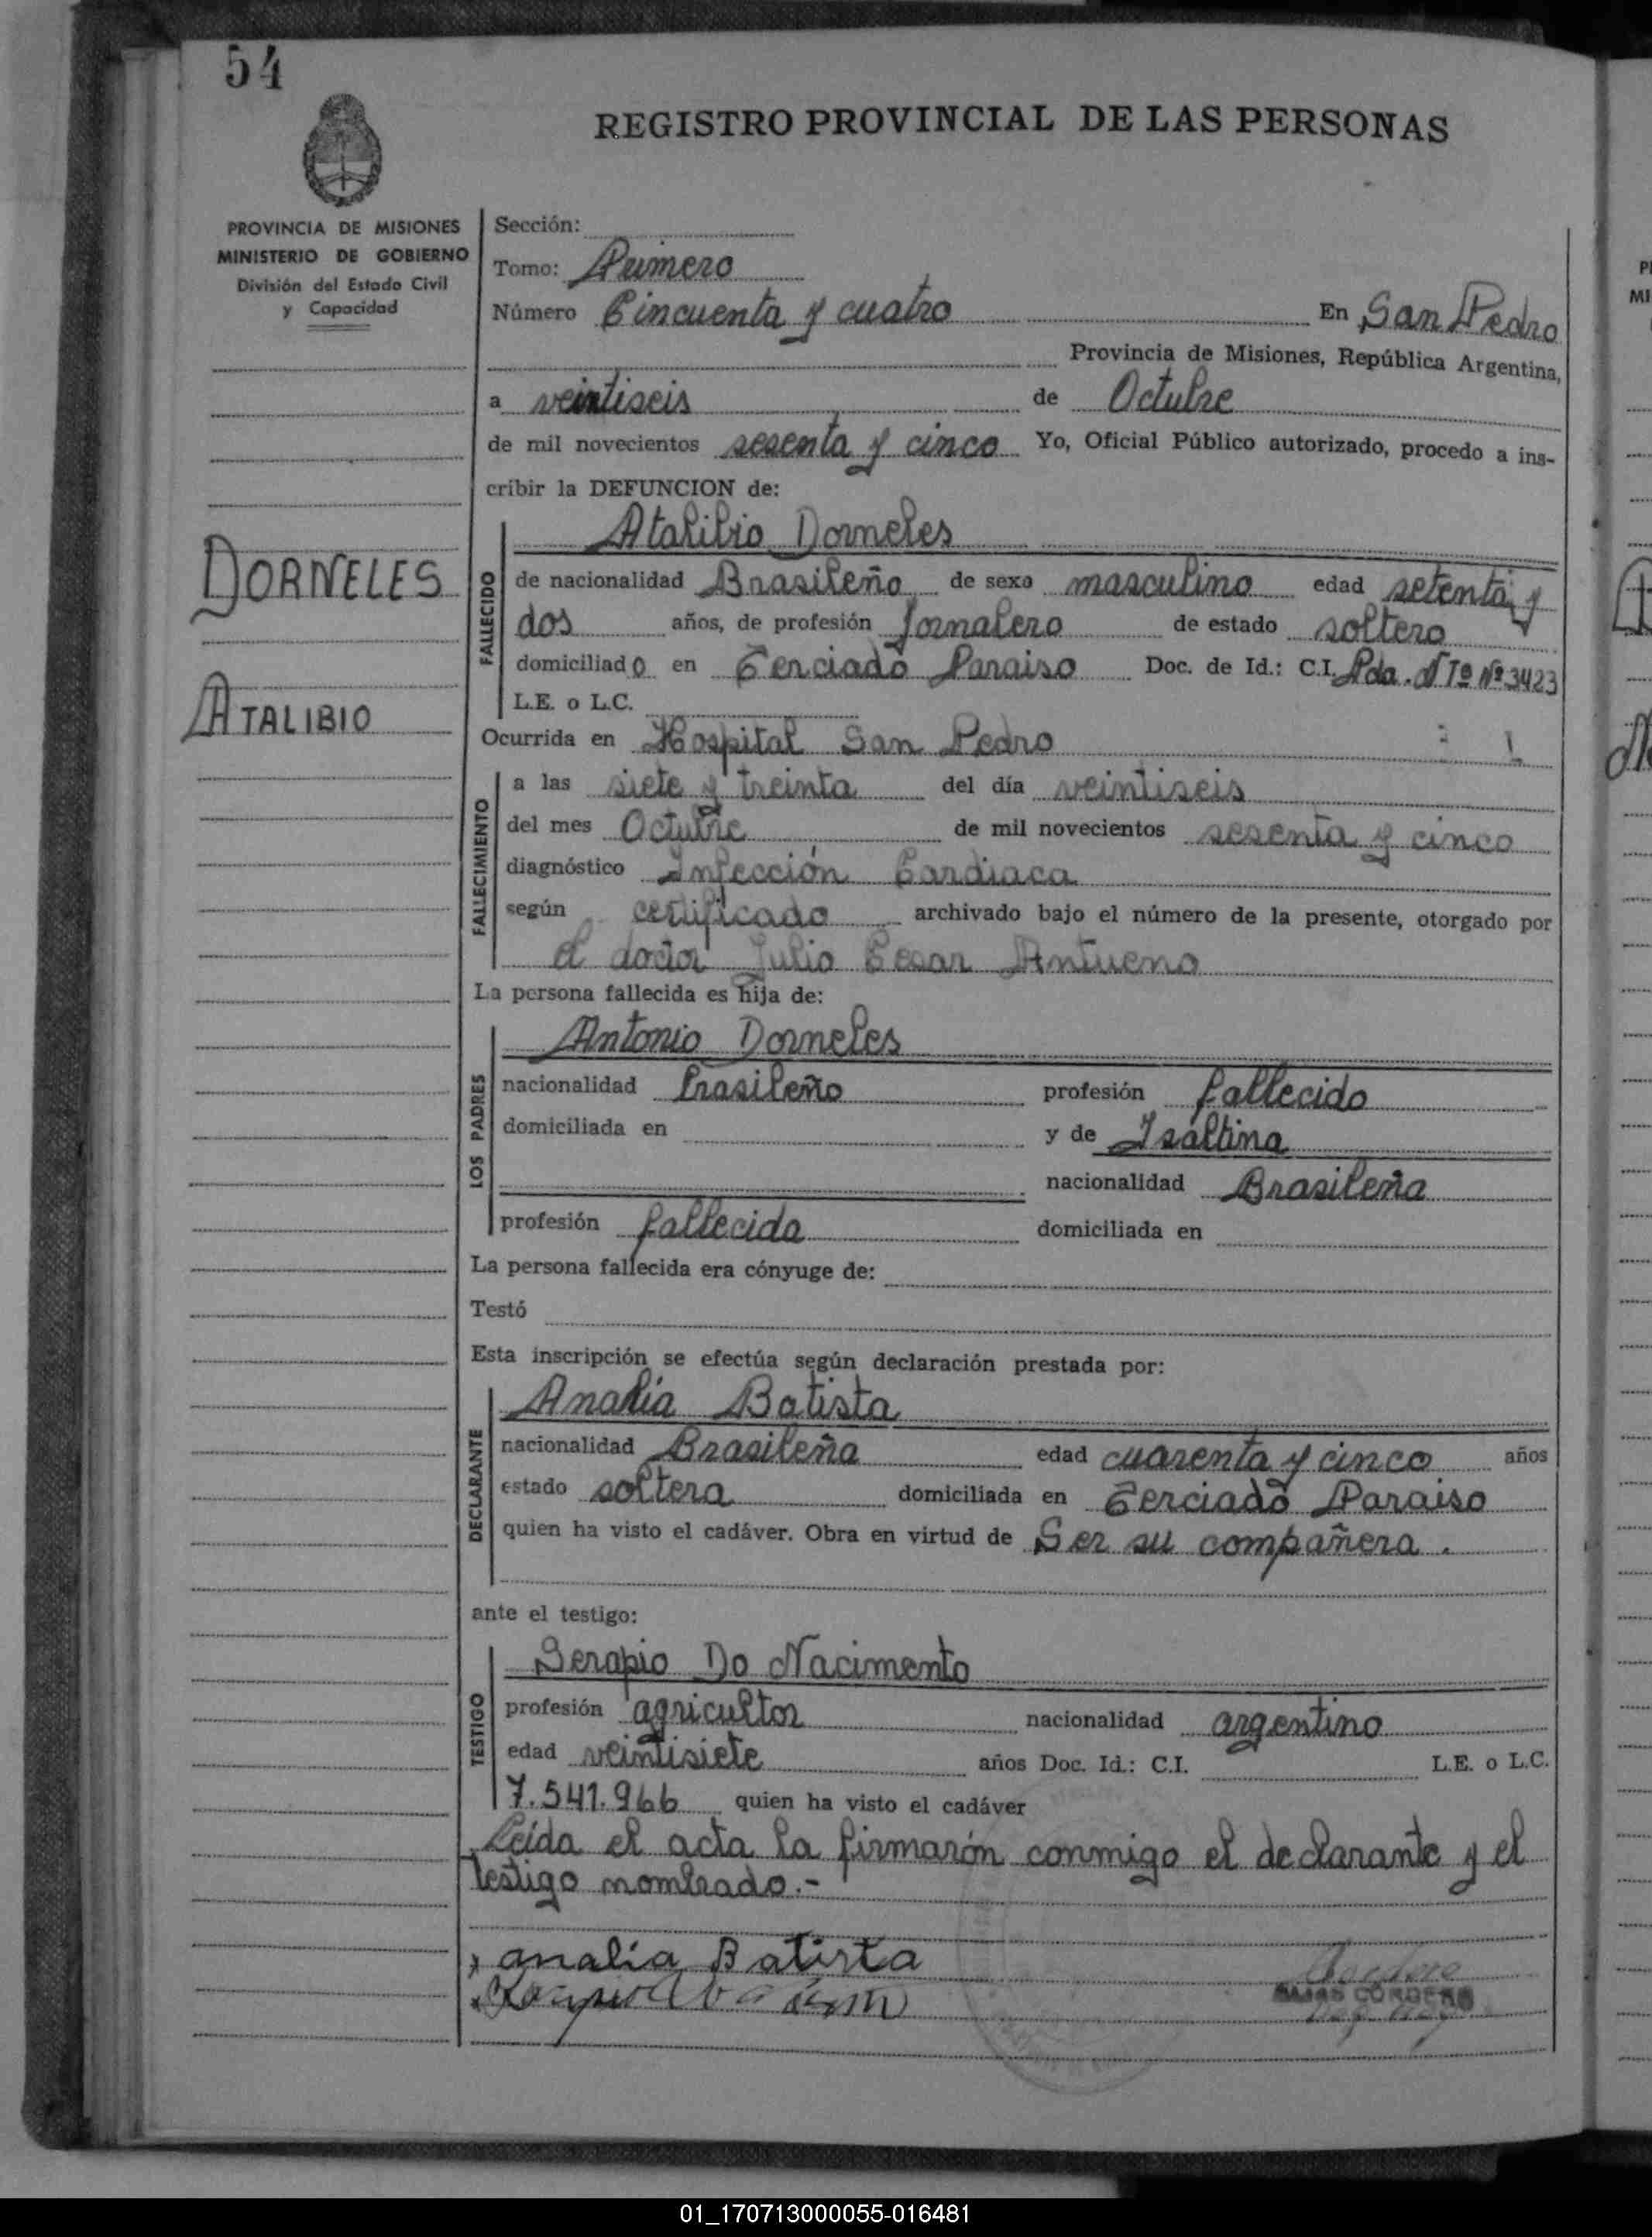 54
REGISTRO PROVINCIAL DE LAS PERSONAS
PROVINCIA DE MISIONES
MINISTERIO DE GOBIERNO
División del Estado Civil
y Capacidad
DORNELES
ATALIBIO
Sección:
Tomo: Primero
Número Cincuenta y cuatro En San Pedro
Provincia de Misiones, República Argentina,
a veintiseis de Octubre
de mil novecientos sesenta y cinco Yo, Oficial Público autorizado, procedo a ins-
cribir la DEFUNCION de:
FALLECIDO
Atalibio Dorneles
de nacionalidad Brasileño de sexo masculino edad setenta y
dos años, de profesión Jornalero de estado soltero
domiciliado en Terciado Paraiso Doc. de Id.: C.I. Pda. Nº 3423
L.E. o L.C.
Ocurrida en Hospital San Pedro
FALLECIMIENTO
a las siete y treinta del día veintiseis
del mes Octubre de mil novecientos sesenta y cinco
diagnóstico Infección Cardiaca
según certificado archivado bajo el número de la presente, otorgado por
el doctor Julio Cesar Antueno
La persona fallecida es hija de:
LOS PADRES
Antonio Dorneles
nacionalidad brasileño profesión fallecido
domiciliada en y de Isaltina
nacionalidad Brasileña
profesión fallecida domiciliada en
La persona fallecida era cónyuge de:
Testó
Esta inscripción se efectúa según declaración prestada por:
DECLARANTE
Analía Batista
nacionalidad Brasileña edad cuarenta y cinco años
estado soltera domiciliada en Terciado Paraiso
quien ha visto el cadáver. Obra en virtud de Ser su compañera.
ante el testigo:
TESTIGO
Serapio Do Nacimento
profesión agricultor nacionalidad argentino
edad veintisiete años Doc. Id.: C.I. L.E. o L.C.
7.541.966 quien ha visto el cadáver
Leída el acta la firmarón conmigo el declarante y el
testigo nombrado.-
analía Batista
CORDERO
01_170713000055-016481